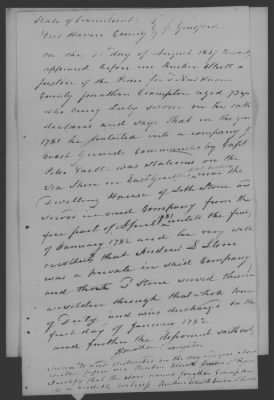 State of Connecticut
New Haven County } Guilford
on the 1st day of August 1837 Personally
appeared before me Reuben Elliott a
Justice of the Peace for New Haven
County Jonathan Crampton aged 73 years
who being duly sworn on his oath
declares and says that in the year
1781 he enlisted into a company of
Coast Guards Commanded by Capt
Peter Vaill was stationed on the
Sea Shore in East Guilford near the
Dwelling House of Seth Stone and
served in said Company from the
fore part of April 1781 untill the first
of January 1782 and he very well
recollects that Andrew L Stone
was a private in said Company
and that Stone served there
as a soldier through that whole tour
of Duty and was discharged on the
first day of January 1782
and further the deponent saith not
Jonathan Crampton
Sworn to and subscribed on the day and year above
written before me Reuben Elliott Justice of Peace
I certify that the above named Jonathan Crampton
is a credible witness Reuben Elliott Justice of Peace